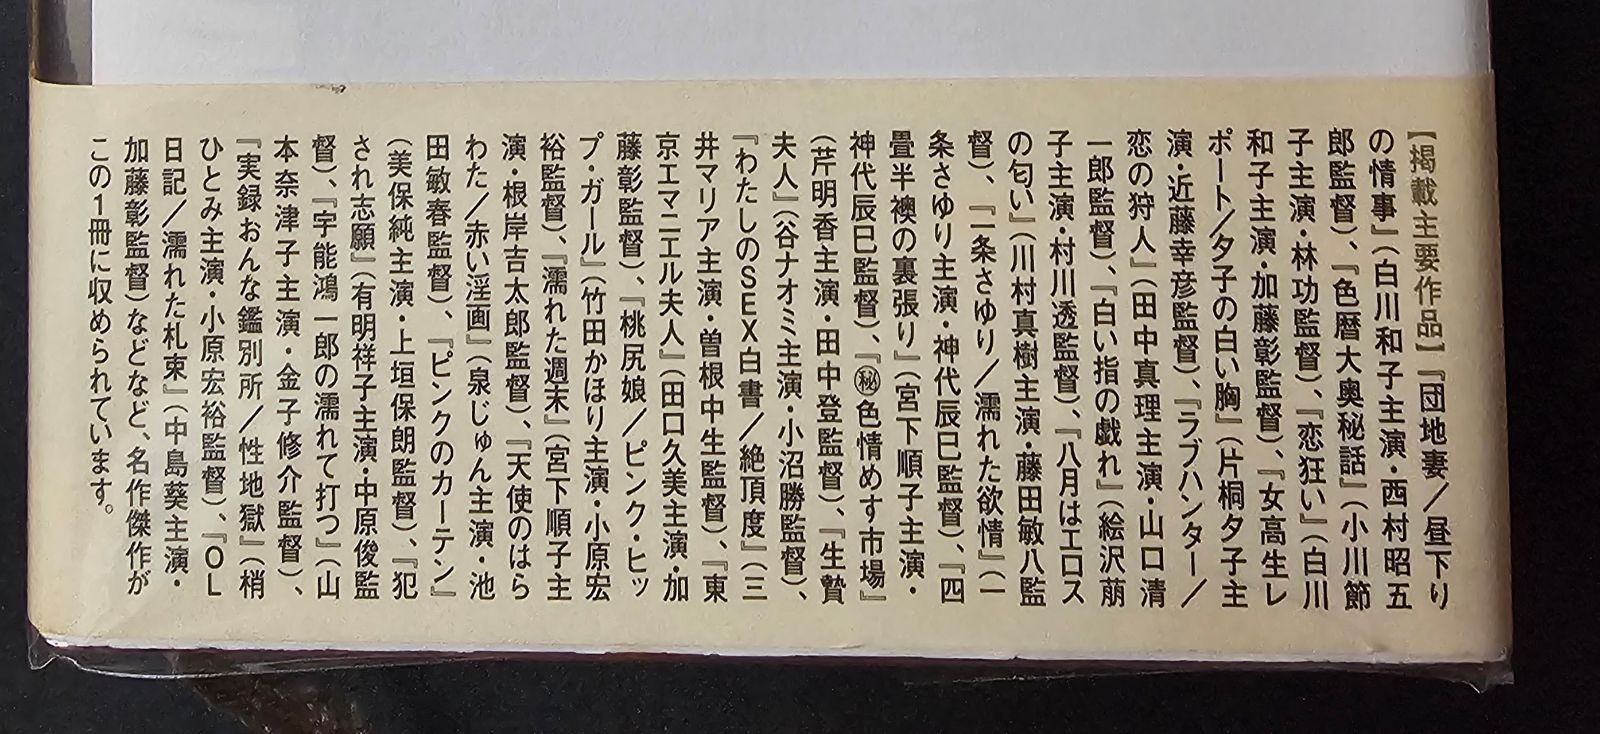 【掲載主要作品】『団地妻／昼下り
の情事』(白川和子主演・西村昭五
郎監督)、『色暦大奥秘話』(小川節
子主演・林功監督)、『恋狂い』(白川
和子主演・加藤彰監督)、『女高生レ
ポート／夕子の白い胸』(片桐夕子主
演・近藤幸彦監督)、『ラブハンター／
恋の狩人』(田中真理主演・山口清
一郎監督)、『白い指の戯れ』(絵沢萠
子主演・村川透監督)、『八月はエロス
の匂い』(川村真樹主演・藤田敏八監
督)、『一条さゆり／濡れた欲情』(一
条さゆり主演・神代辰巳監督)、『四
畳半襖の裏張り』(宮下順子主演・
神代辰巳監督)、『㊙色情めす市場』
(芹明香主演・田中登監督)、『生贄
夫人』(谷ナオミ主演・小沼勝監督)、
『わたしのSEX白書／絶頂度』(三
井マリア主演・曽根中生監督)、『東
京エマニエル夫人』(田口久美主演・加
藤彰監督)、『桃尻娘／ピンク・ヒッ
プ・ガール』(竹田かほり主演・小原宏
裕監督)、『濡れた週末』(宮下順子主
演・根岸吉太郎監督)、『天使のはら
わた／赤い淫画』(泉じゅん主演・池
田敏春監督)、『ピンクのカーテン』
(美保純主演・上垣保朗監督)、『犯
され志願』(有明祥子主演・中原俊監
督)、『宇能鴻一郎の濡れて打つ』(山
本奈津子主演・金子修介監督)、
『実録おんな鑑別所／性地獄』(梢
ひとみ主演・小原宏裕監督)、『OL
日記／濡れた札束』(中島葵主演・
加藤彰監督)などなど、名作傑作が
この1冊に収められています。